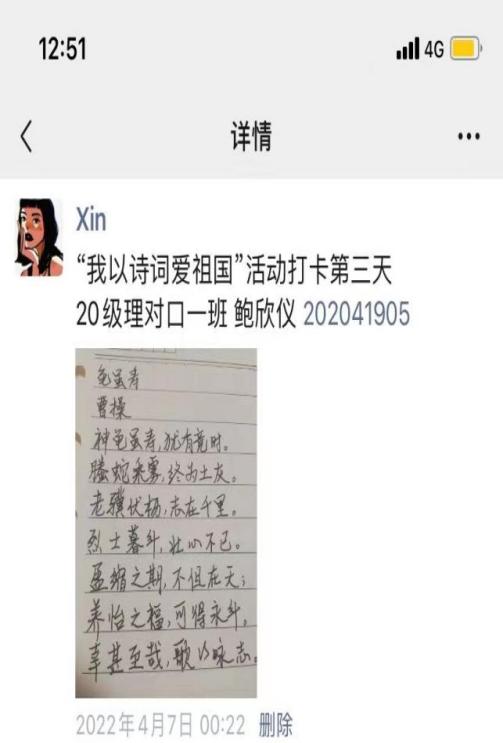 12:51
4G
详情
Xin
“我以诗词爱祖国”活动打卡第三天
20级理对口一班 鲍欣仪 202041905
龟虽寿
曹操
神龟虽寿,犹有竟时。
螣蛇乘雾,终为土灰。
老骥伏枥,志在千里。
烈士暮年,壮心不已。
盈缩之期,不但在天;
养怡之福,可得永年。
幸甚至哉,歌以咏志。
2022年4月7日 00:22 删除